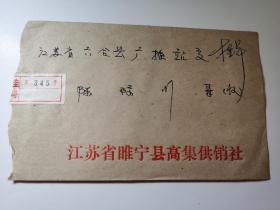 江苏省六合县广播站交
345
陈 川 收
江苏省睢宁县高集供销社